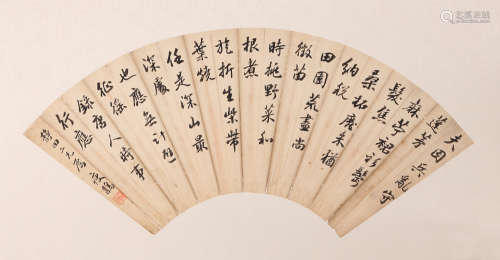 夫因兵亂守
蓬茅
麻苧裙衫鬢
髮焦
桑柘廢來猶
納稅
田園荒盡尚
徵苗
時挑野菜和
根煮
旋折生柴帶
葉燒
任是深山最
深處
也應無計避
征徭
錄唐人時事
行應